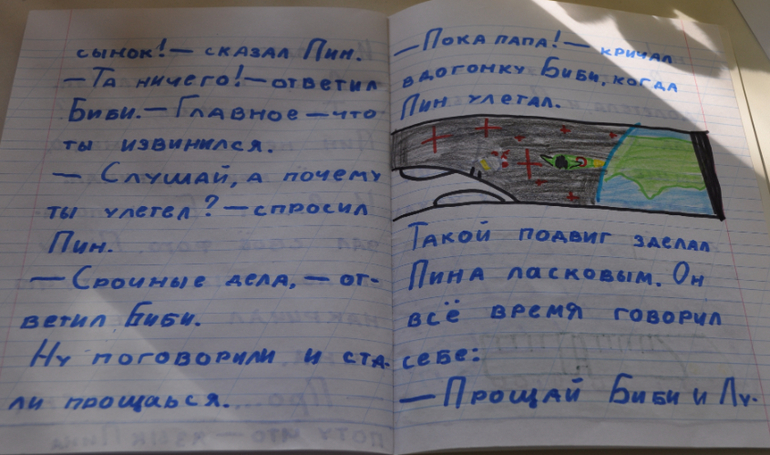 сынок! — сказал Пин.
— Та ничего! — ответил
Биби. — Главное — что
ты извинился.
— Слушай, а почему
ты улетел? — спросил
Пин.
— Срочные дела, — от-
ветил Биби.
Ну поговорили и ста-
ли прощаься.
— Пока папа! — кричал
вдогонку Биби, когда
Пин улетал.
Такой подвиг зделал
Пина ласковым. Он
всё время говорил
себе:
— Прощай Биби и Лу-